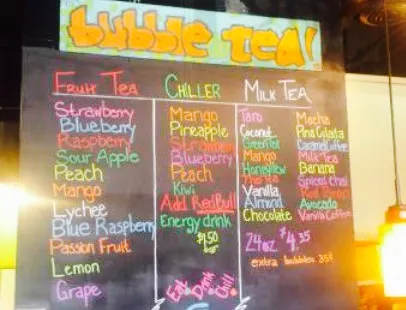 bubble tea!
Fruit Tea
Strawberry
Blueberry
Raspberry
Sour Apple
Peach
Mango
Lychee
Blue Raspberry
Passion Fruit
Lemon
Grape
Chiller
Mango
Pineapple
Strawberry
Blueberry
Peach
Kiwi
Add RedBull
Energy drink
$1.50
Eat Drink Chill
Milk Tea
Taro
Coconut
Green Tea
Mango
Honeydew
Vanilla
Almond
Chocolate
Mocha
Pina Colada
Caramel Coffee
Milk Tea
Banana
Spiced Chai
Red Bean
Avocado
Vanilla Coffee
24oz $4.35
extra bubbles 35¢